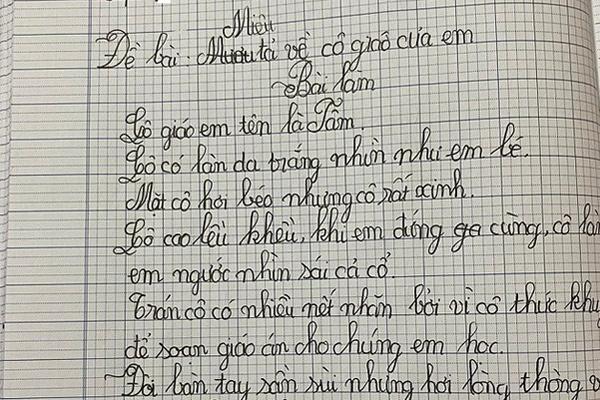 Miêu
Đề bài: Mươu tả về cô giáo của em
Bài làm
Cô giáo em tên là Tâm.
Cô có làn da trắng nhìn như em bé.
Mặt cô hơi béo nhưng cô rất xinh.
Cô cao lêu khêu, khi em đứng ga cùng, cô làm
em ngước nhìn sái cả cổ.
Trán cô có nhiều nết nhăn bởi vì cô thức khu
để soan giáo án cho chúng em học.
Đôi bàn tay sần sùi nhưng hơi lòng thòng v